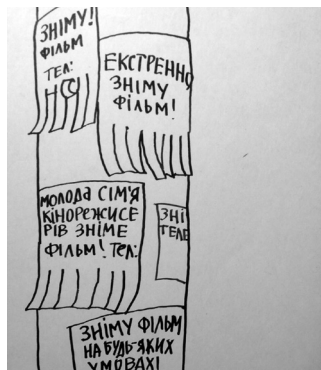 ЗНІМУ!
ФІЛЬМ
ТЕЛ:
ЕКСТРЕННО
ЗНІМУ
ФІЛЬМ!
МОЛОДА СІМ'Я
КІНОРЕЖИСЕ
РІВ ЗНІМЕ
ФІЛЬМ! Тел:
ЗНІ
ТЕЛЕ
ЗНІМУ ФІЛЬМ
НА БУДЬ-ЯКИХ
УМОВАХ!